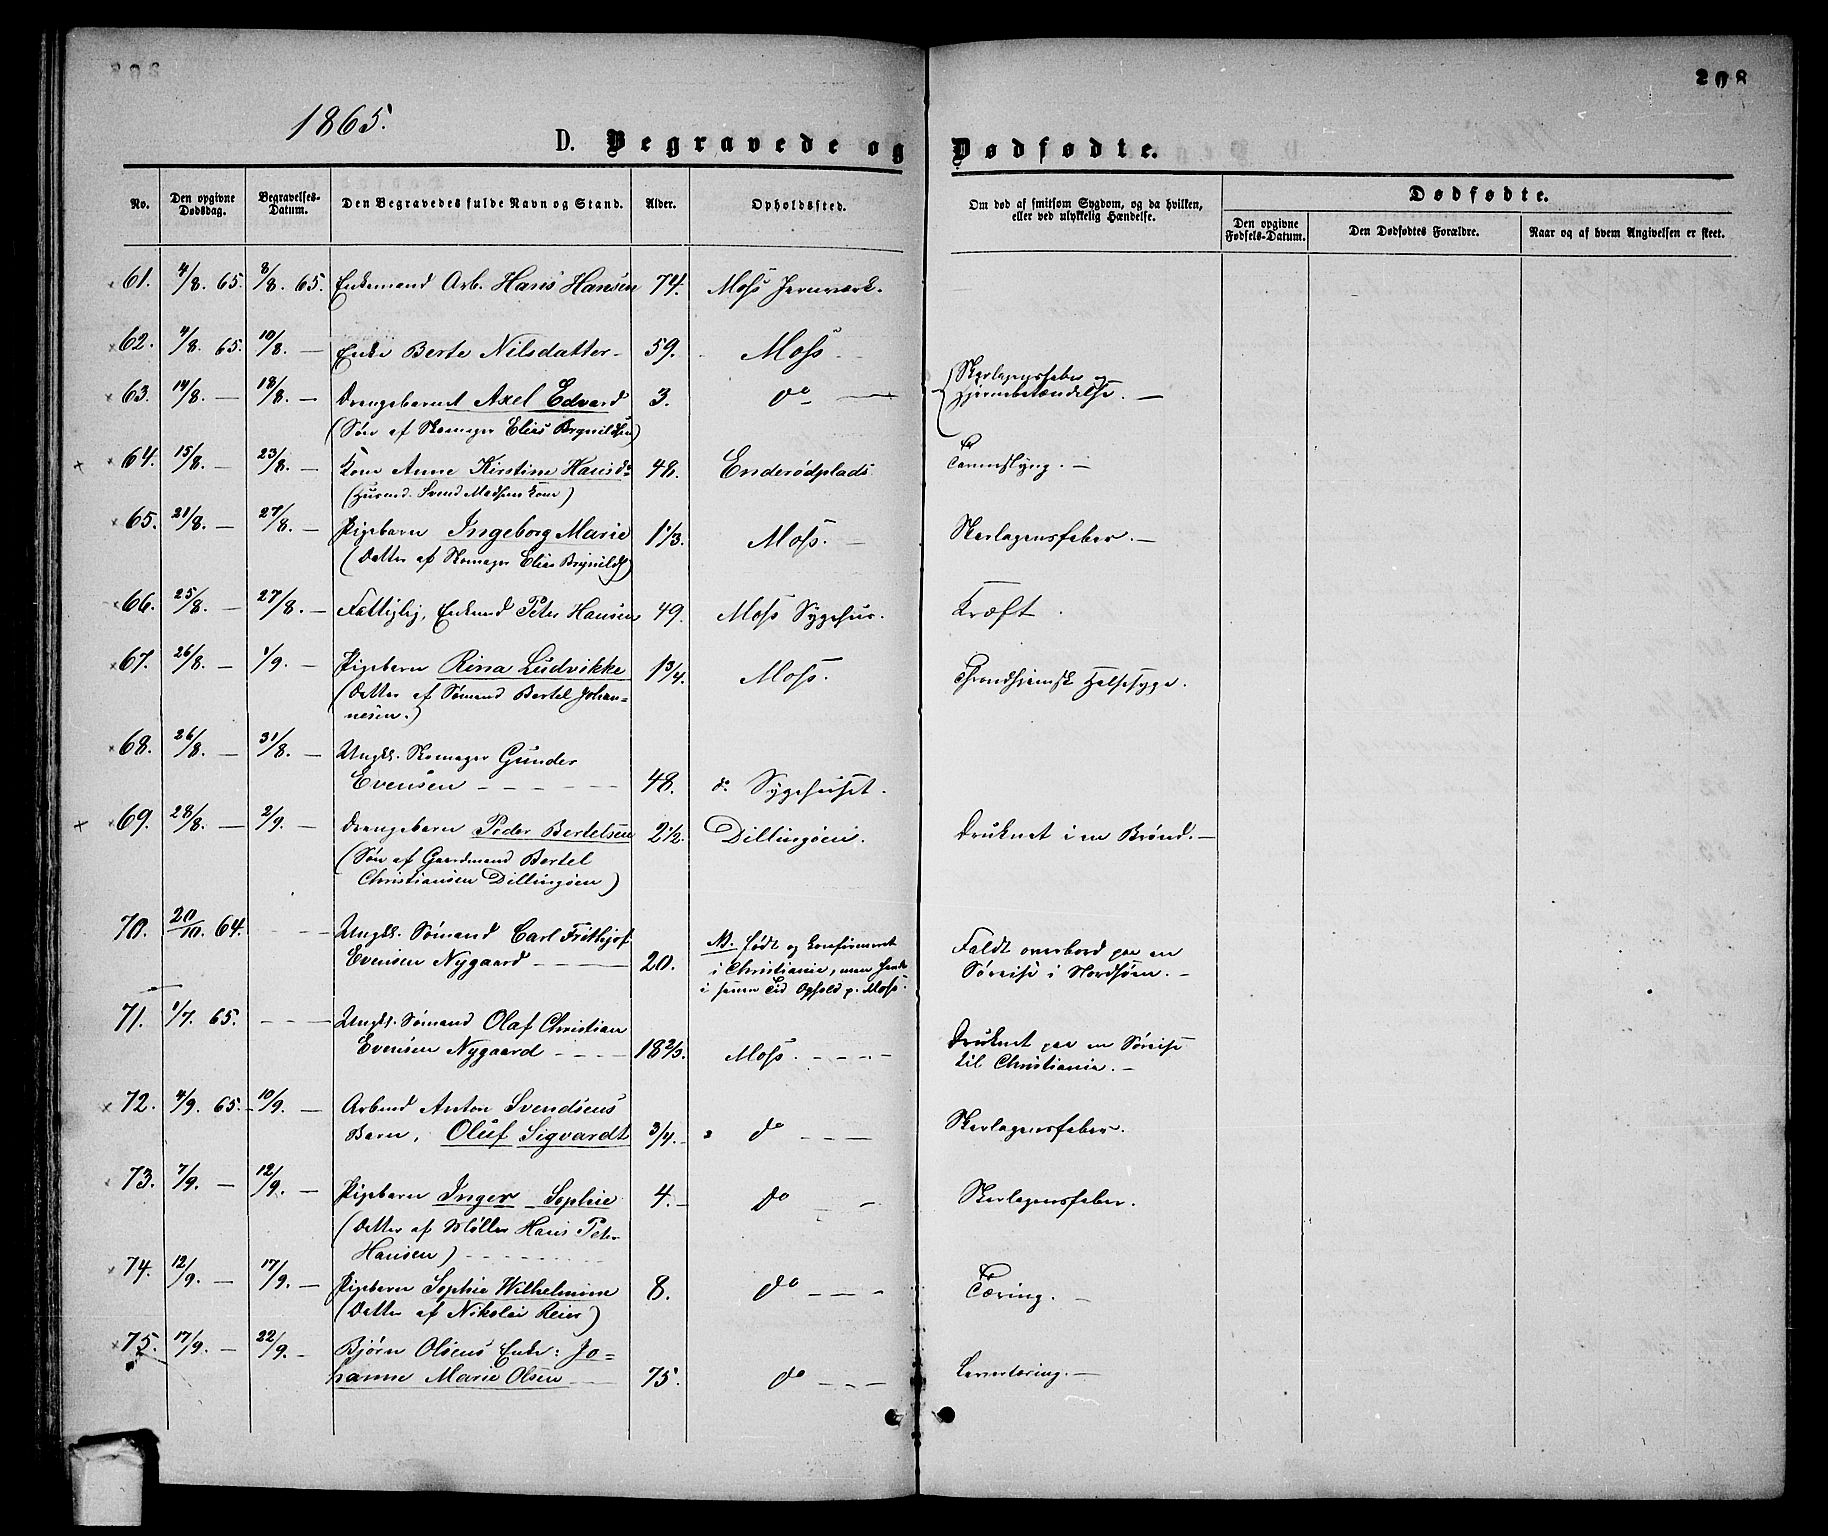 208
1865.
D. Begravede og Dødfødte.
No. Den opgivne Dødsdag. Begravelses-Datum. Den Begravedes fulde Navn og Stand. Alder. Opholdssted. Om død af smitsom Sygdom, og da hvilken, eller ved ulykkelig Hændelse. Dødfødte.
Den opgivne Fødsels-Datum. Den Dødfødtes Forældre. Naar og af hvem Angivelsen er skeet.
61. 4/8. 65. 8/8. 65. Enkemand Arb. Hans Hansen 74. Moss Jernværk.
62. 4/8. 65. 10/8. — Enke Berte Nilsdatter 59. Moss
63. 14/8. — 18/8. — Drengebarnet Axel Edvard 3. do — Skarlagensfeber og
(Søn af Skomager Elias Brynildsen) Hjernebetændelse. —
64. 15/8. — 23/8. — Kone Anne Kirstine Hansd. 48. Enderødplads
(Husmd. Svend Madsens Kone)
65. 21/8. — 27/8. — Pigebarn Ingeborg Marie 1 1/3. Moss. — Skarlagensfeber. —
(Datter af Skomager Elias Brynilds)
66. 25/8. — 27/8. — Fattiglej, Enkemd Peter Hansen 49. Moss Sygehus. Kræft.
67. 26/8. — 1/9. — Pigebarn Rina Ludvikke 1 3/4. Moss. Throndhjemsk Halssyge.
(Datter af Sømand Bertel Johan-
nesen.)
68. 26/8. — 31/8. — Ungk. Skomager Gunder
Evensen — — — 48. do Sygehuset.
69. 28/8. — 2/9. — Drengebarn Peder Bertelsen 2 1/2. Dillingøen. Druknet i en Brønd. —
(Søn af Gaardmand Bertel
Christiansen Dillingøen)
70. 20/10. 64. — — Ungk. Sømand Carl Frithjof NB. født og konfirmeret Faldt overbord paa en
Evensen Nygaard — — 20. i Christiania, men havde Søreise i Nordsøen. —
i senere Tid Ophold p. Moss.
71. 1/7. 65. — — — Ungk. Sømand Olaf Christian Druknet paa en Søreise
Evensen Nygaard — — — 18 2/3. Moss. — — — til Christiania. —
72. 4/9. 65. 10/9. — Arbmd Anton Svendsens
Barn, Oluf Sigvardt 3/4. — do — — — Skarlagensfeber.
73. 7/9. — 12/9. — Pigebarn Inger Sophie 4. — do — — Skarlagensfeber.
(Datter af Møller Hans Peter
Hansen) — — — —
74. 12/9. — 17/9. — Pigebarn Sophie Wilhelmine 8. do — — — Tæring. —
(Datter af Nikolai Reier)
75. 17/9. — 22/9. — Bjørn Olsens Enke: Jo-
hanne Marie Olsen — 75. do — — — Lavertæring. —